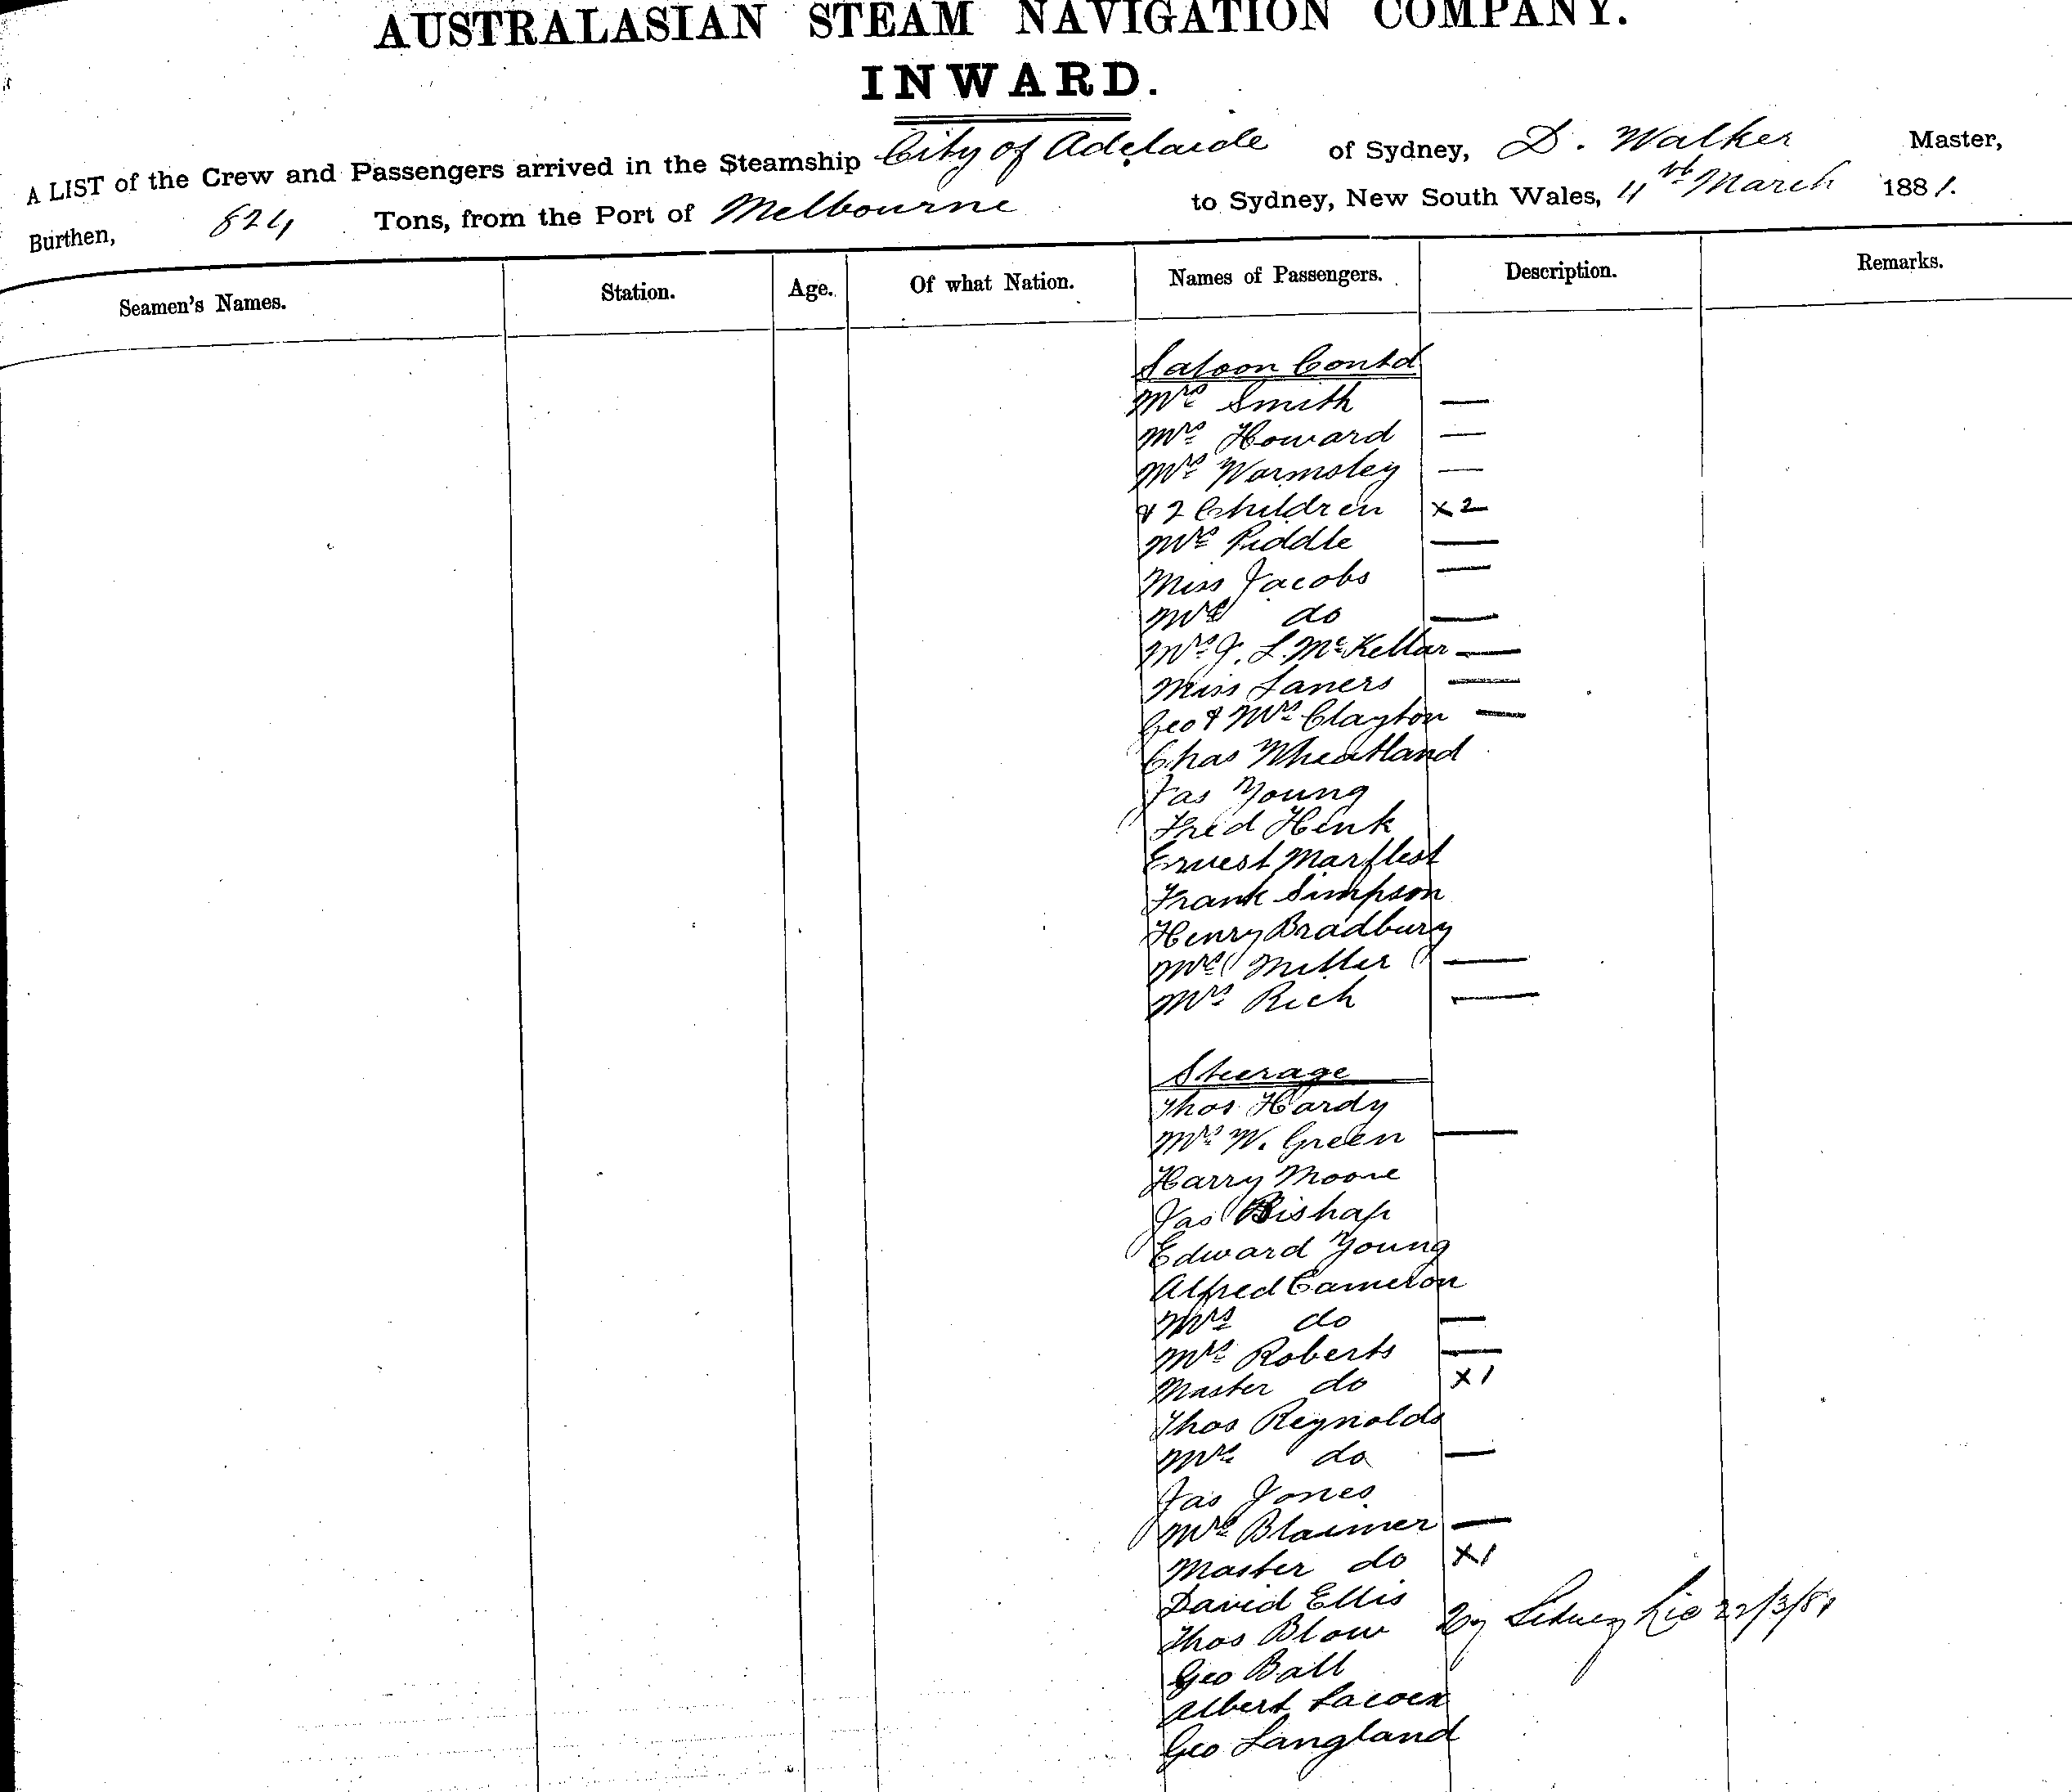 AUSTRALASIAN STEAM NAVIGATION COMPANY.
INWARD.
A LIST of the Crew and Passengers arrived in the Steamship City of Adelaide of Sydney, D. Walker Master,
Burthen, 824 Tons, from the Port of Melbourne to Sydney, New South Wales, 11th March 1881.
Seamen's Names. Station. Age. Of what Nation. Names of Passengers. Description. Remarks.
Saloon Contd
Mrs Smith —
Mrs Howard —
Mrs Warmsley —
& 2 Children x 2
Mrs Piddle —
Miss Jacobs —
Mrs do —
Mrs J. L. McKellar —
Miss Laners —
Geo & Mrs Clayton —
Chas Wheatland
Jas Young
Fred Henk
Ernest Marflest
Frank Simpson
Henry Bradbury
Mrs Miller —
Mrs Rich —
Steerage
Thos Hardy
Mrs W. Green —
Harry Moore
Jas Bishap
Edward Young
Alfred Cameron
Mrs do —
Mrs Roberts —
Master do x 1
Thos Reynolds
Mrs do —
Jas Jones
Mrs Blaimer —
Master do x 1
David Ellis
Thos Blow
22/3/81
Geo Ball
Albert
Geo Langland